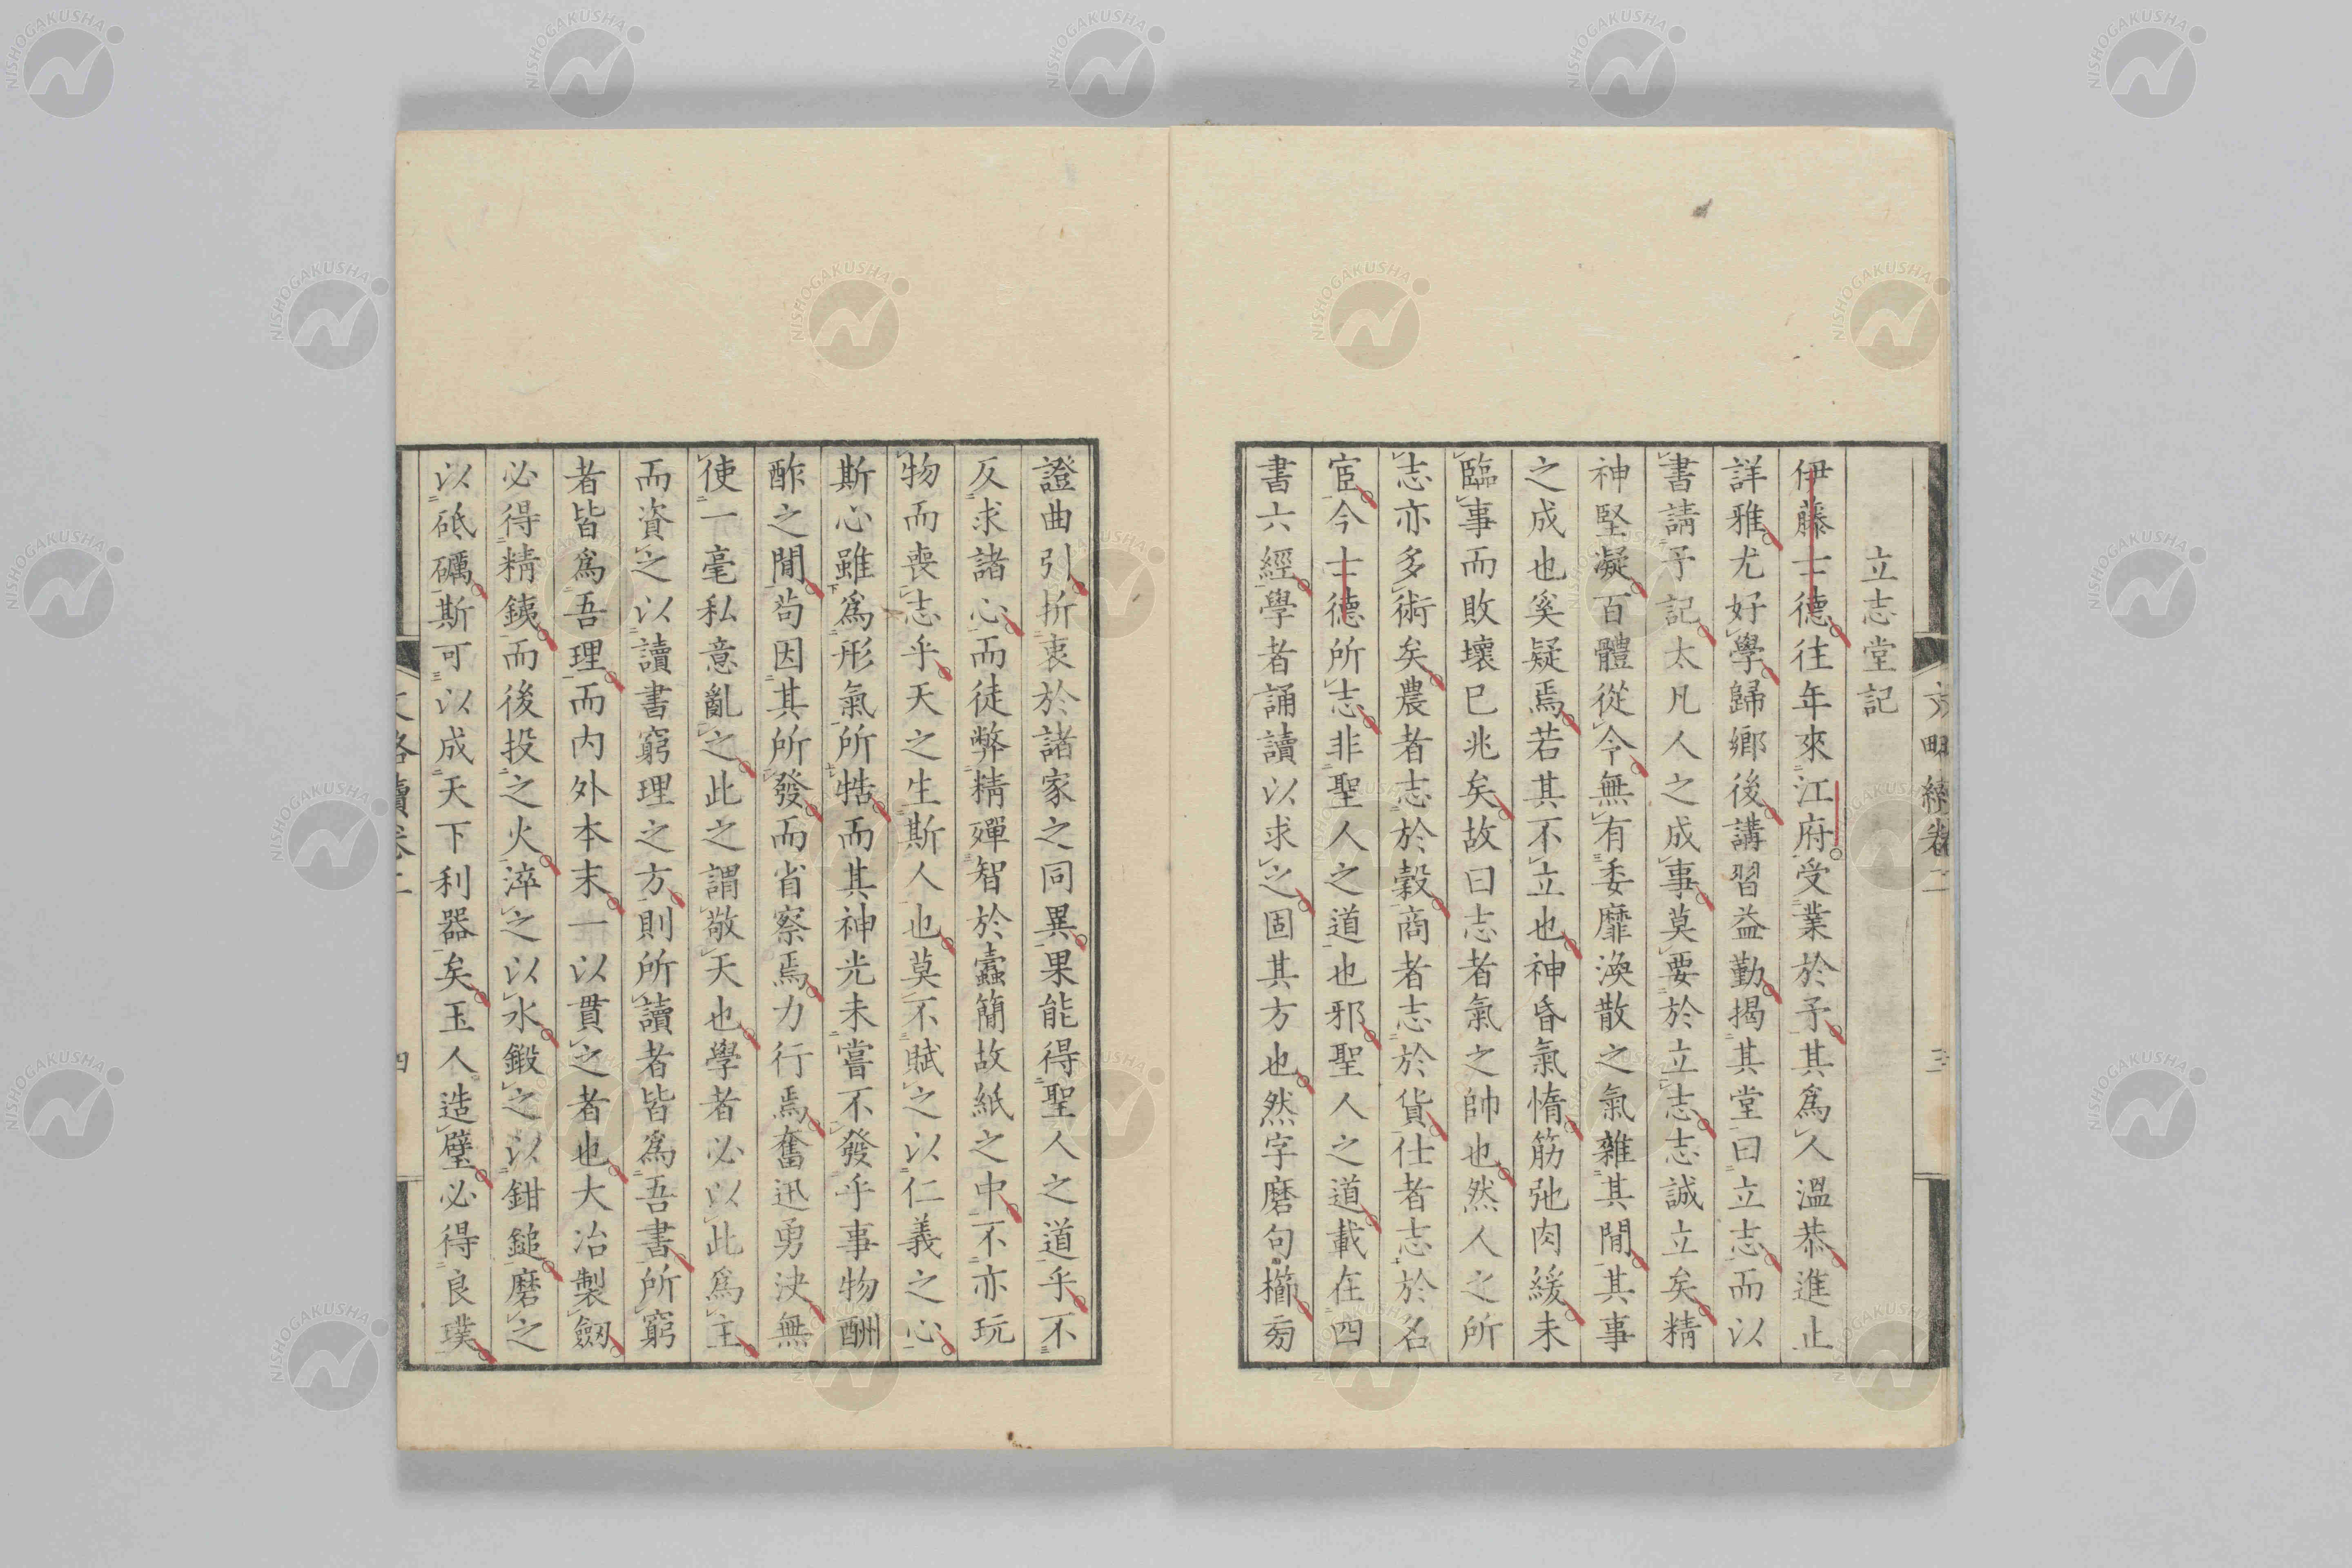 立志堂記
伊藤士德往年來江府受業於予其爲人溫恭進止
詳雅尤好學歸鄉後講習益勤揭其堂曰立志而以
書請予記太凡人之成事莫要於立志志誠立矣精
神堅凝百體從令無有委靡渙散之氣雜其閒其事
之成也奚疑焉若其不立也神昏氣惰筋弛肉緩未
臨事而敗壞已兆矣故曰志者氣之帥也然人之所
志亦多術矣農者志於穀商者志於貨仕者志於名
宦今士德所志非聖人之道也邪聖人之道載在四
書六經學者誦讀以求之固其方也然字磨句櫛旁
證曲引折衷於諸家之同異果能得聖人之道乎不
反求諸心而徒弊精殫智於蠹簡故紙之中不亦玩
物而喪志乎天之生斯人也莫不賦之以仁義之心
斯心雖爲形氣所牿而其神光未嘗不發乎事物酬
酢之閒苟因其所發而省察焉力行焉奮迅勇決無
使一毫私意亂之此之謂敬天也學者必以此爲主
而資之以讀書窮理之方則所讀者皆爲吾書所窮
者皆爲吾理而內外本末一以貫之者也大冶製劔
必得精銕而後投之火淬之以水鍛之以鉗鎚磨之
以砥礪斯可以成天下利器矣玉人造璧必得良璞
四